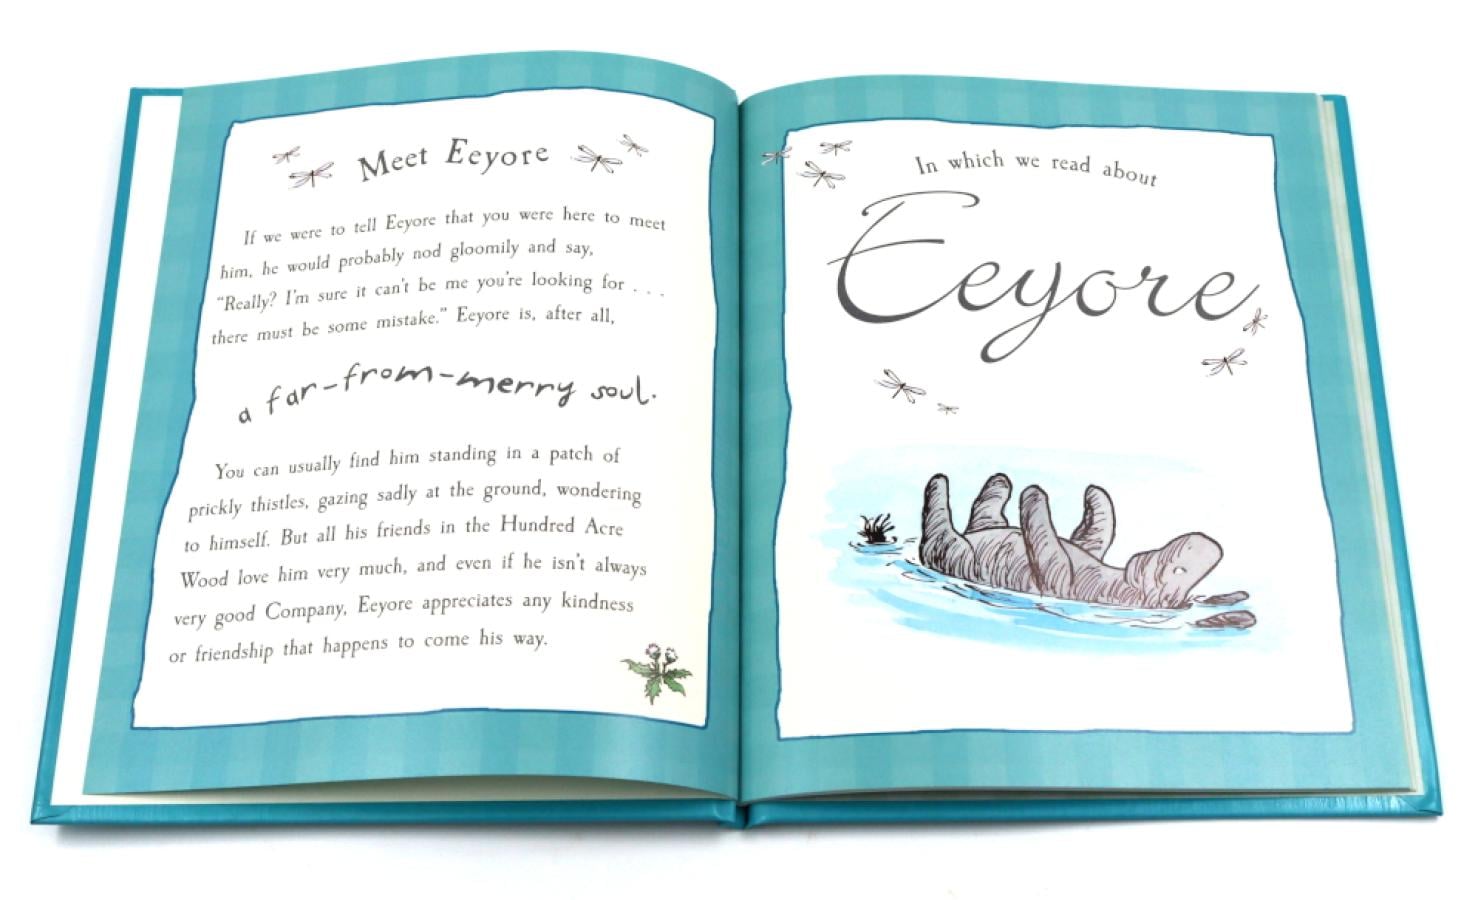 Meet Eeyore
If we were to tell Eeyore that you were here to meet
him, he would probably nod gloomily and say,
“Really? I’m sure it can’t be me you’re looking for . . .
there must be some mistake.” Eeyore is, after all,
a far-from-merry soul.
You can usually find him standing in a patch of
prickly thistles, gazing sadly at the ground, wondering
to himself. But all his friends in the Hundred Acre
Wood love him very much, and even if he isn’t always
very good Company, Eeyore appreciates any kindness
or friendship that happens to come his way.
In which we read about
Eeyore